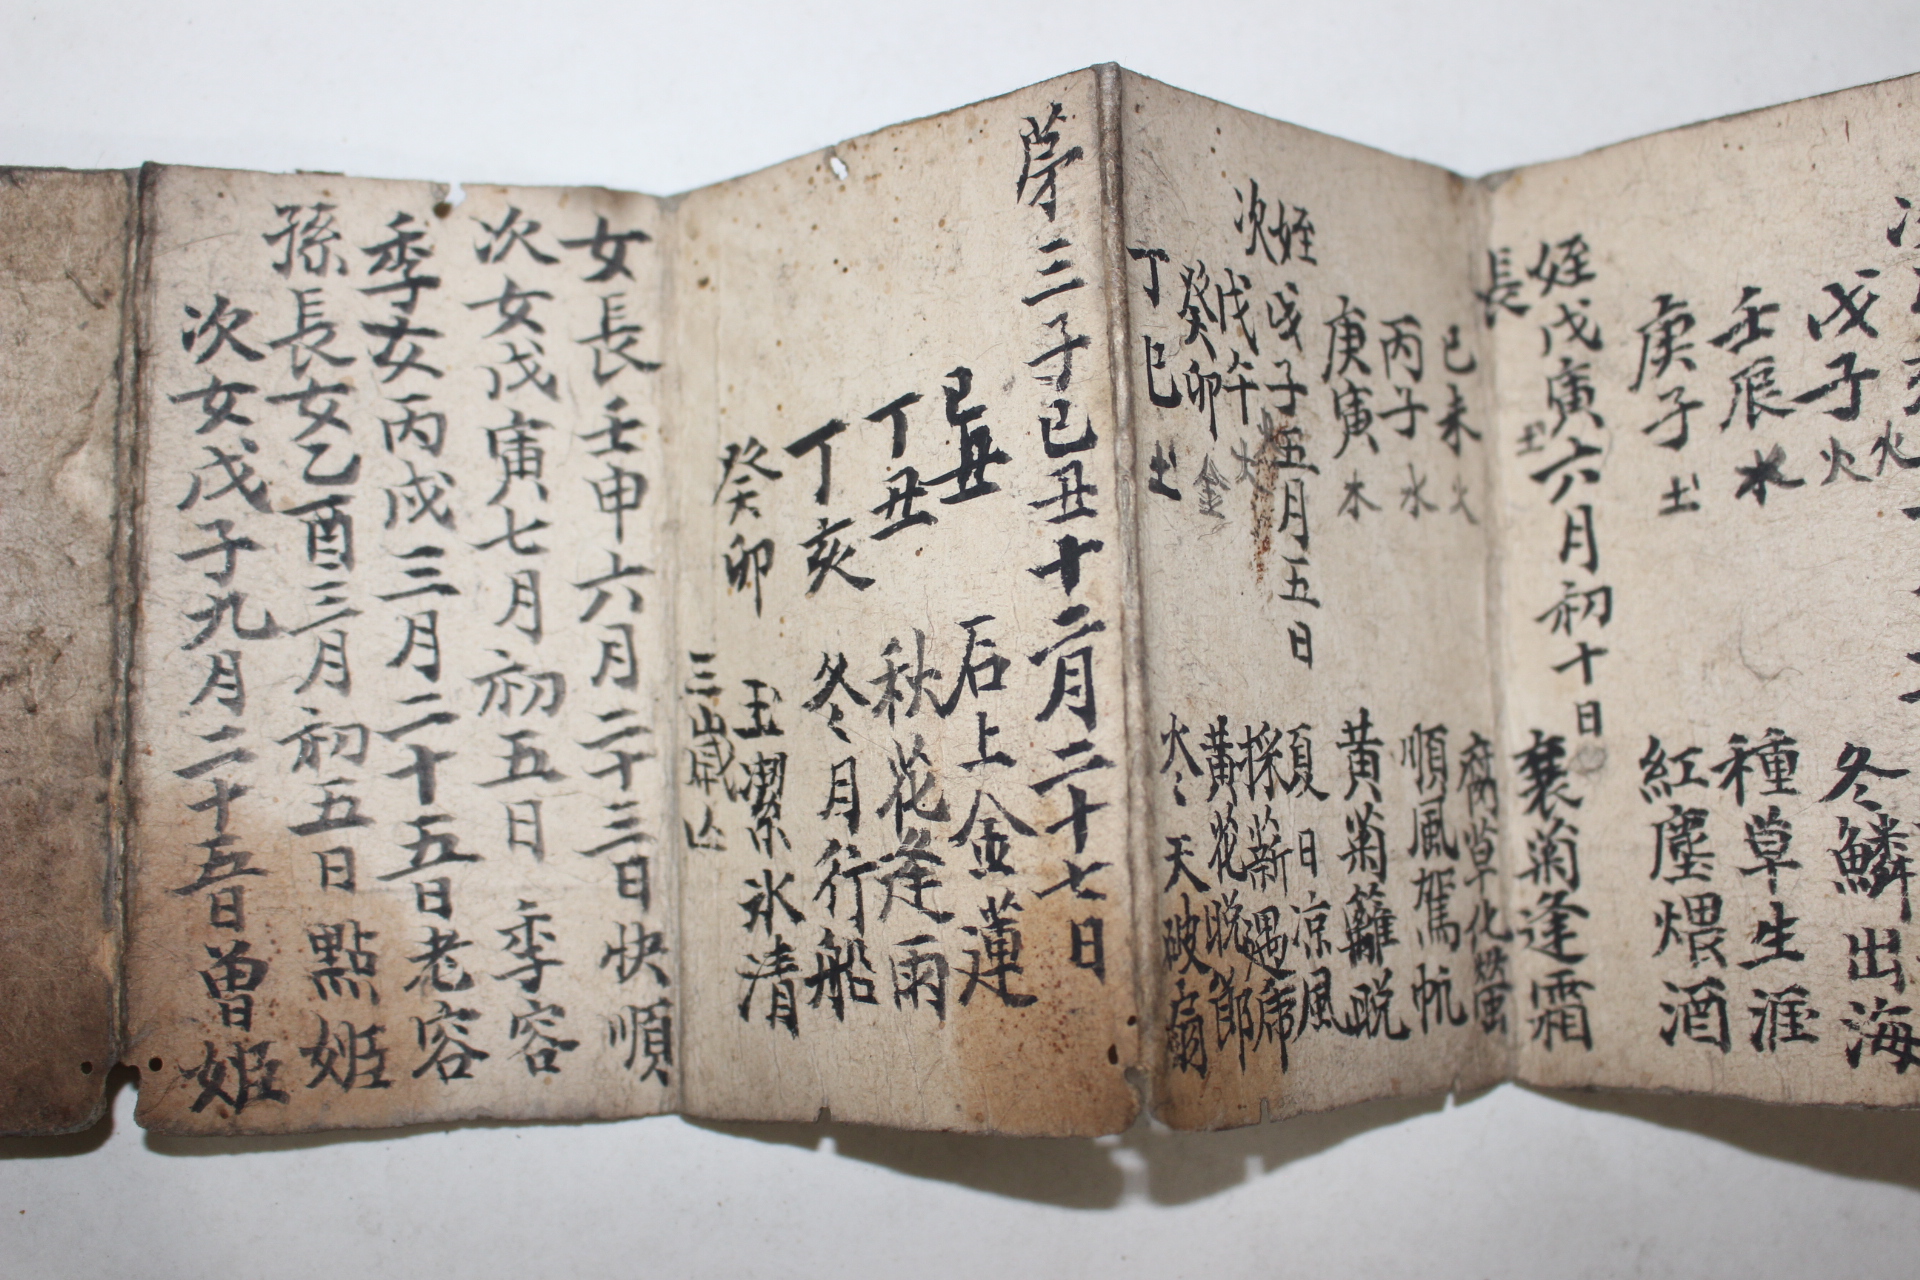 戊子火
壬辰水
庚子土
冬鱗出海
種草生涯
紅塵煨酒
姪戊寅六月初十日
長
土
襄菊逢霜
己未火
丙子水
庚寅木
腐草化螢
順風駕帆
黃菊籬脫
姪戊子五月五日
次
戊午火
癸卯金
丁巳土
夏日凉風
採薪遇席
黃花晩節
冬天破扇
第三子己丑十二月二十七日
己丑 石上金蓮
丁丑 秋花逢雨
丁亥 冬月行船
癸卯 玉潔氷淸
三歲亡
女長壬申六月二十三日快順
次女戊寅七月初五日季容
季女丙戌三月二十五日老容
孫長女乙酉三月初五日點姬
次女戊子九月二十五日曾姬